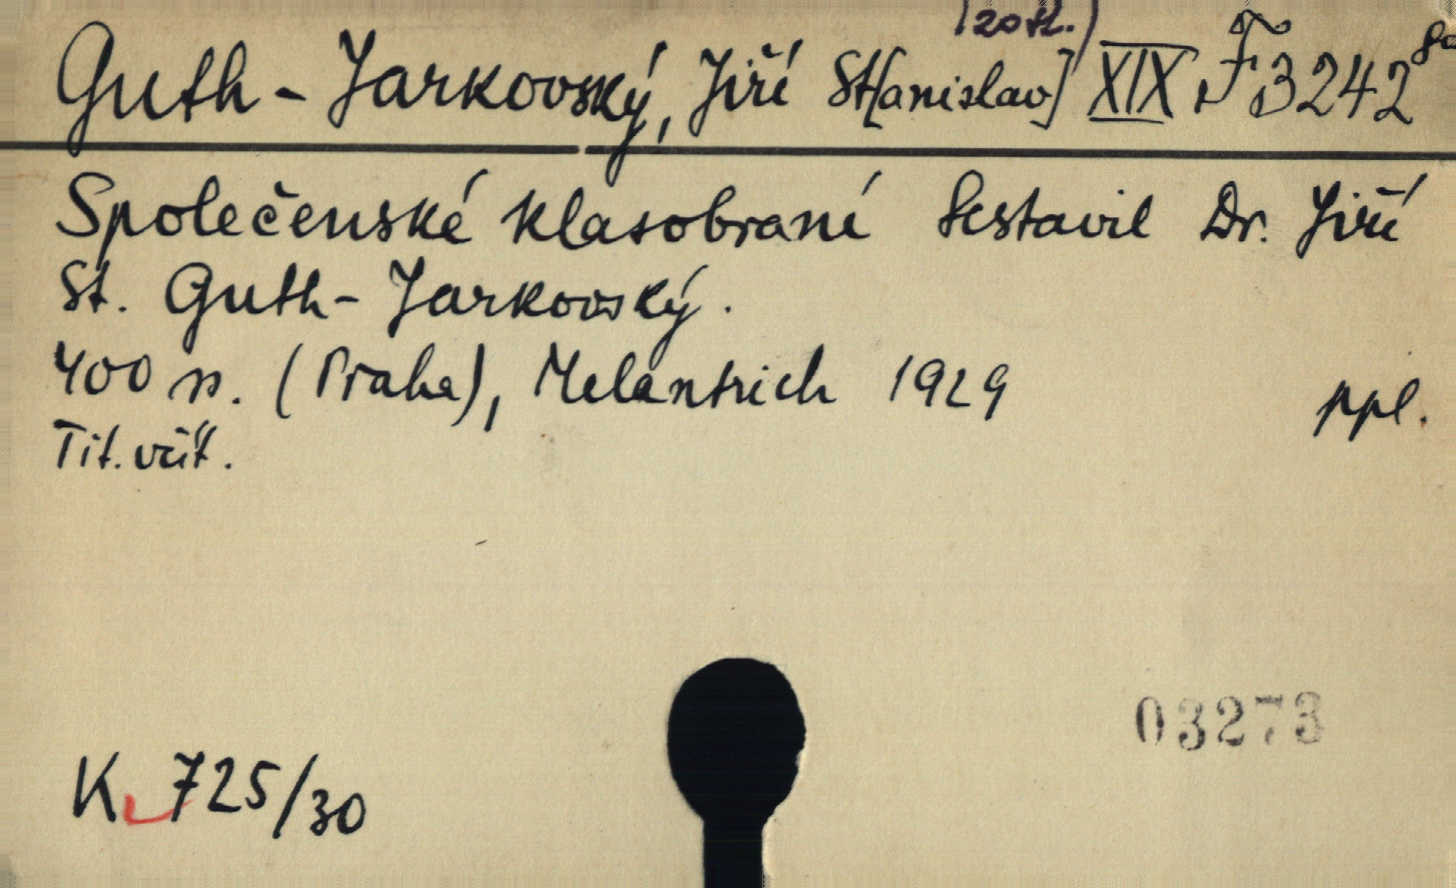 (20 tl.)
Guth-Jarkovský, Jiří St[anislav] XIX F 3242
Společenské klasobraní Sestavil Dr. Jiří
St. Guth-Jarkovský.
400 s. (Praha), Melantrich 1929 ppl.
Tit. výt.
03273
K 725/30